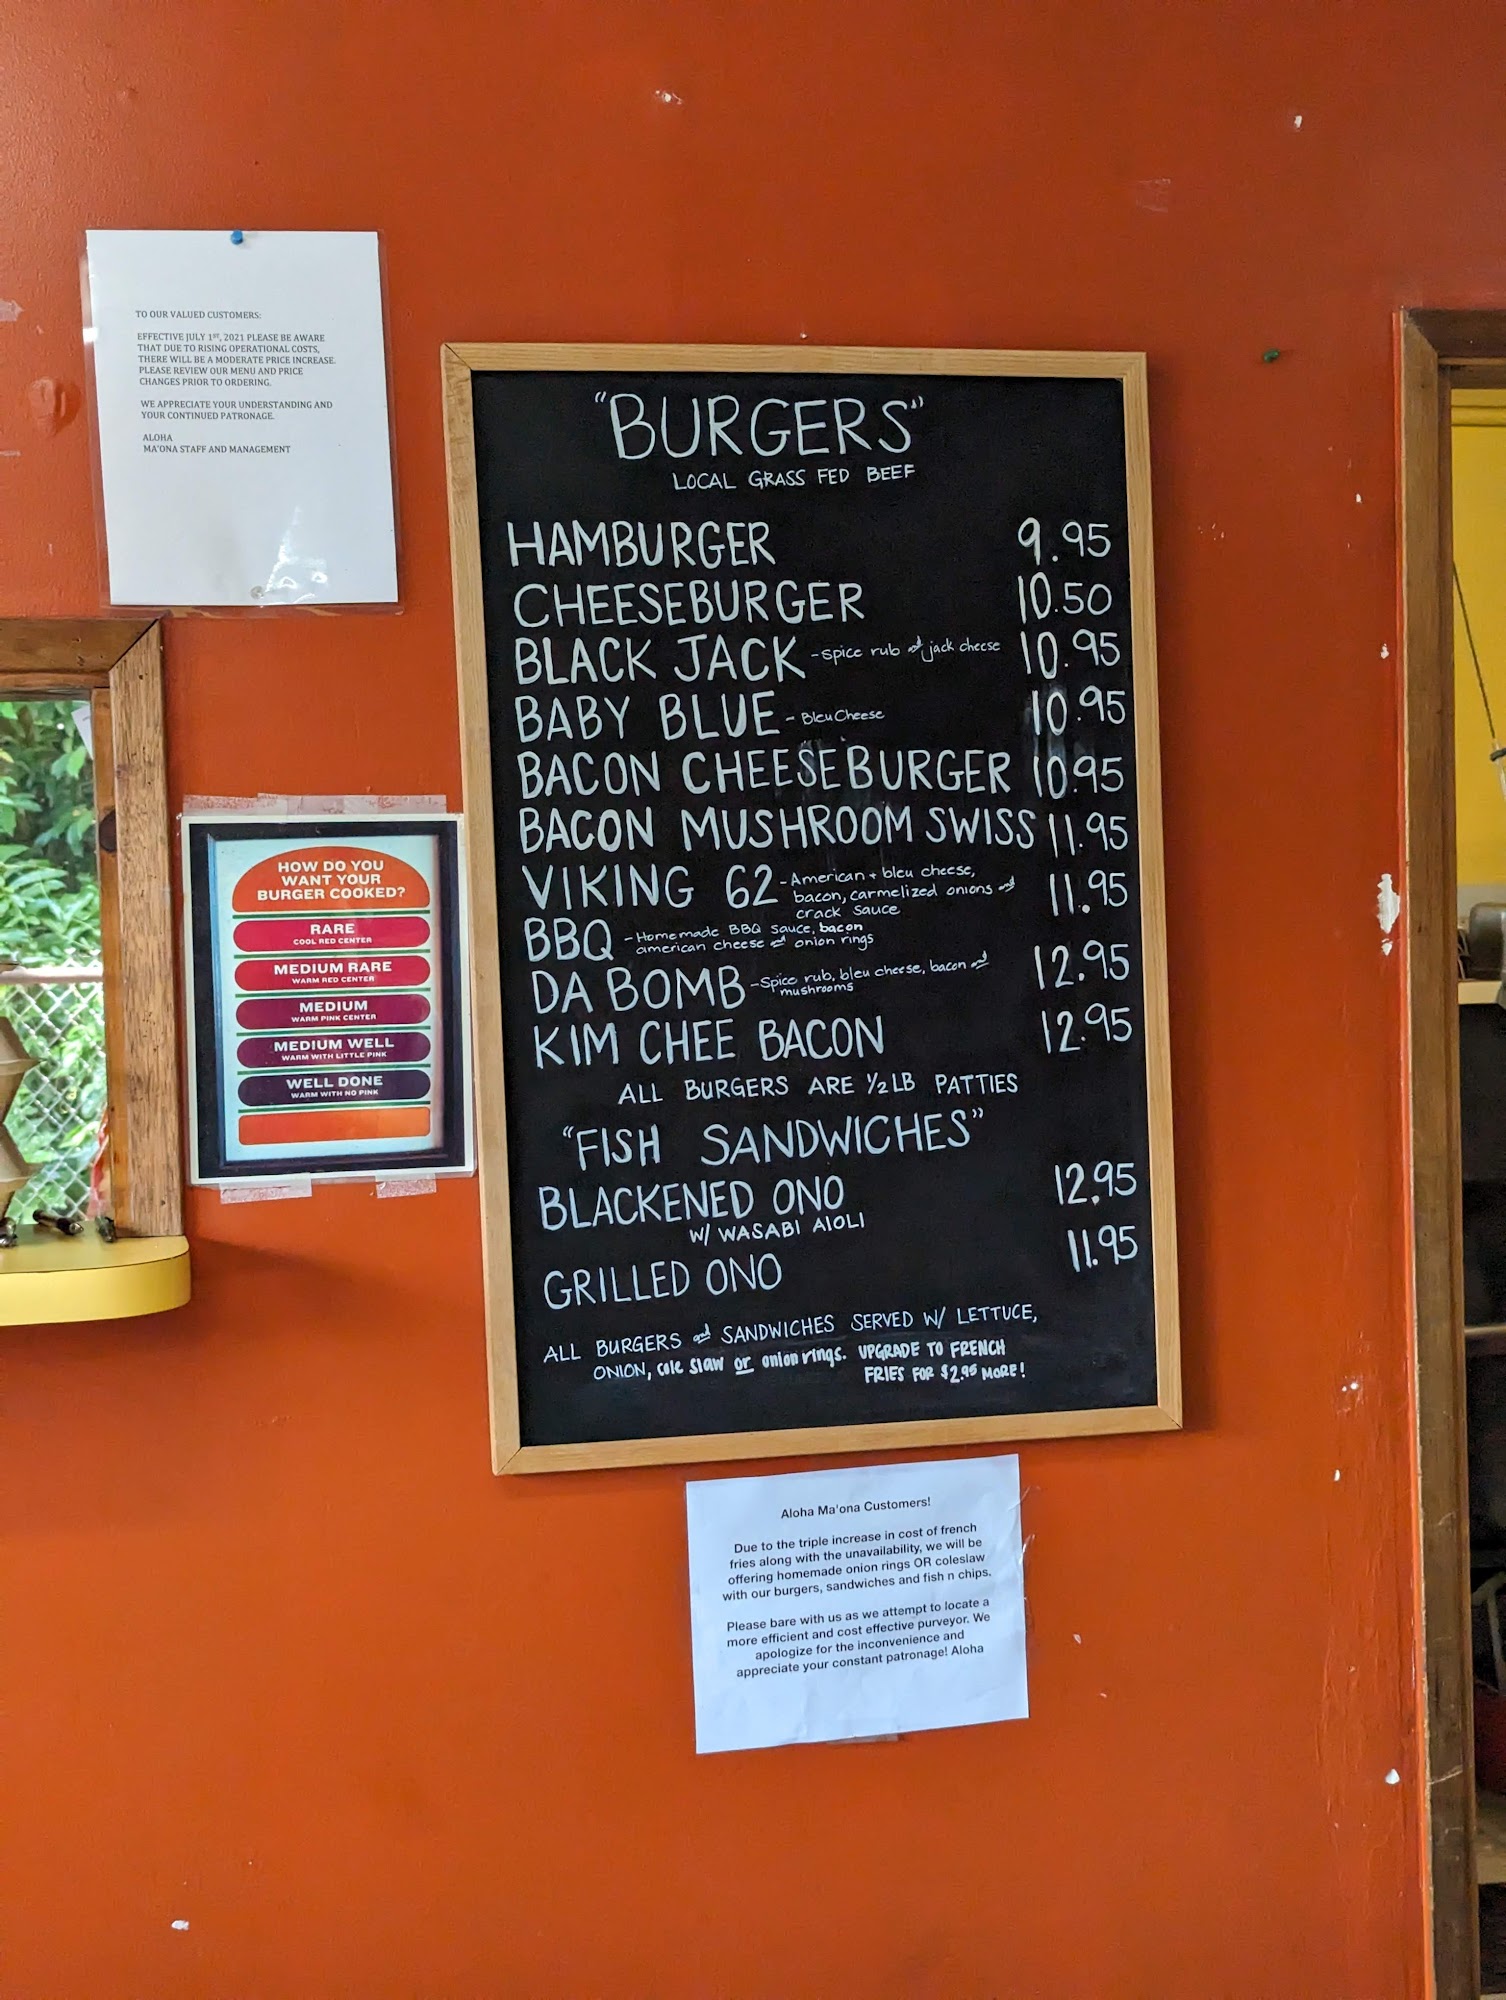 TO OUR VALUED CUSTOMERS:
EFFECTIVE JULY 1ST, 2021 PLEASE BE AWARE
THAT DUE TO RISING OPERATIONAL COSTS,
THERE WILL BE A MODERATE PRICE INCREASE.
PLEASE REVIEW OUR MENU AND PRICE
CHANGES PRIOR TO ORDERING.
WE APPRECIATE YOUR UNDERSTANDING AND
YOUR CONTINUED PATRONAGE.
ALOHA
MA'ONA STAFF AND MANAGEMENT
HOW DO YOU
WANT YOUR
BURGER COOKED?
RARE
COOL RED CENTER
MEDIUM RARE
WARM RED CENTER
MEDIUM
WARM PINK CENTER
MEDIUM WELL
WARM WITH LITTLE PINK
WELL DONE
WARM WITH NO PINK
"BURGERS"
LOCAL GRASS FED BEEF
HAMBURGER 9.95
CHEESEBURGER 10.50
BLACK JACK - spice rub and jack cheese 10.95
BABY BLUE - Bleu Cheese 10.95
BACON CHEESEBURGER 10.95
BACON MUSHROOM SWISS 11.95
VIKING 62 - American + bleu cheese, 11.95
bacon, carmelized onions and
crack sauce
BBQ - Homemade BBQ sauce, bacon
american cheese and onion rings
DA BOMB - Spice rub, bleu cheese, bacon and 12.95
mushrooms
KIM CHEE BACON 12.95
ALL BURGERS ARE 1/2 LB PATTIES
"FISH SANDWICHES"
BLACKENED ONO 12.95
W/ WASABI AIOLI
GRILLED ONO 11.95
ALL BURGERS and SANDWICHES SERVED W/ LETTUCE,
ONION, cole slaw or onion rings. UPGRADE TO FRENCH
FRIES FOR $2.95 MORE!
Aloha Ma'ona Customers!
Due to the triple increase in cost of french
fries along with the unavailability, we will be
offering homemade onion rings OR coleslaw
with our burgers, sandwiches and fish n chips.
Please bare with us as we attempt to locate a
more efficient and cost effective purveyor. We
apologize for the inconvenience and
appreciate your constant patronage! Aloha